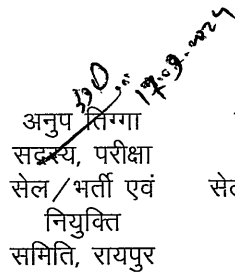 17.9.2024
अनुप तिग्गा
सदस्य, परीक्षा
सेल/भर्ती एवं
नियुक्ति
समिति, रायपुर
सेल